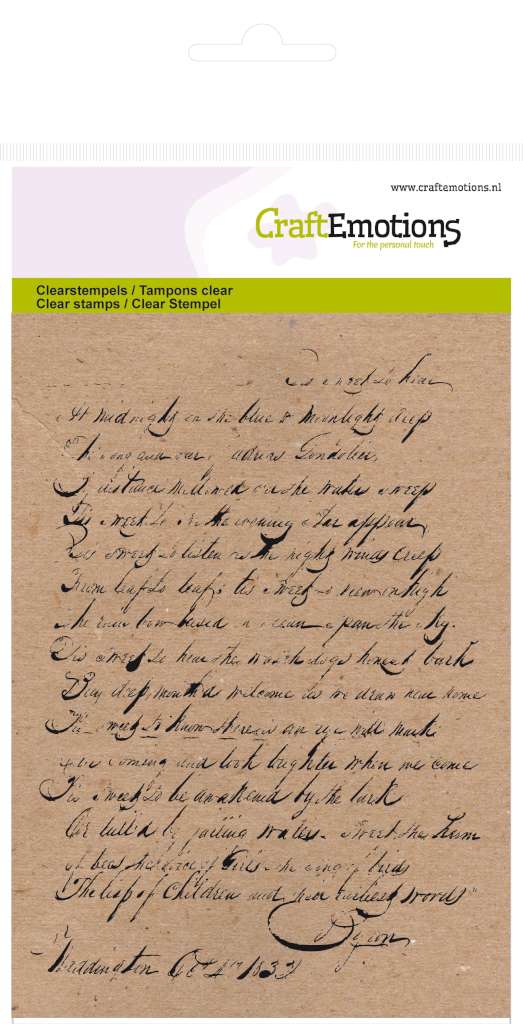 www.craftemotions.nl
CraftEmotions
For the personal touch
Clearstempels / Tampons clear
Clear stamps / Clear Stempel
hear
At midnight on the blue & moonlight deep
The song and oar Gondolier,
By distance mellowed o'er the water sweep
Tis sweet to see the evening star appear,
Tis sweet to listen as the night winds creep
From leaf to leaf; tis sweet to view on high
The rain bow based on ocean span the sky.
Tis sweet to hear the watch dogs honest bark
Bay deep mouthed welcome as we draw near home
Tis sweet to know there is an eye will mark
our coming and look brighter when we come
Tis sweet to be awakened by the lark
Or lull'd by falling waters. sweet the hum
of bees the voice of Girls the song of birds
The lisp of Children and their earliest words"
Byron
Weddington Oct 4th 1832